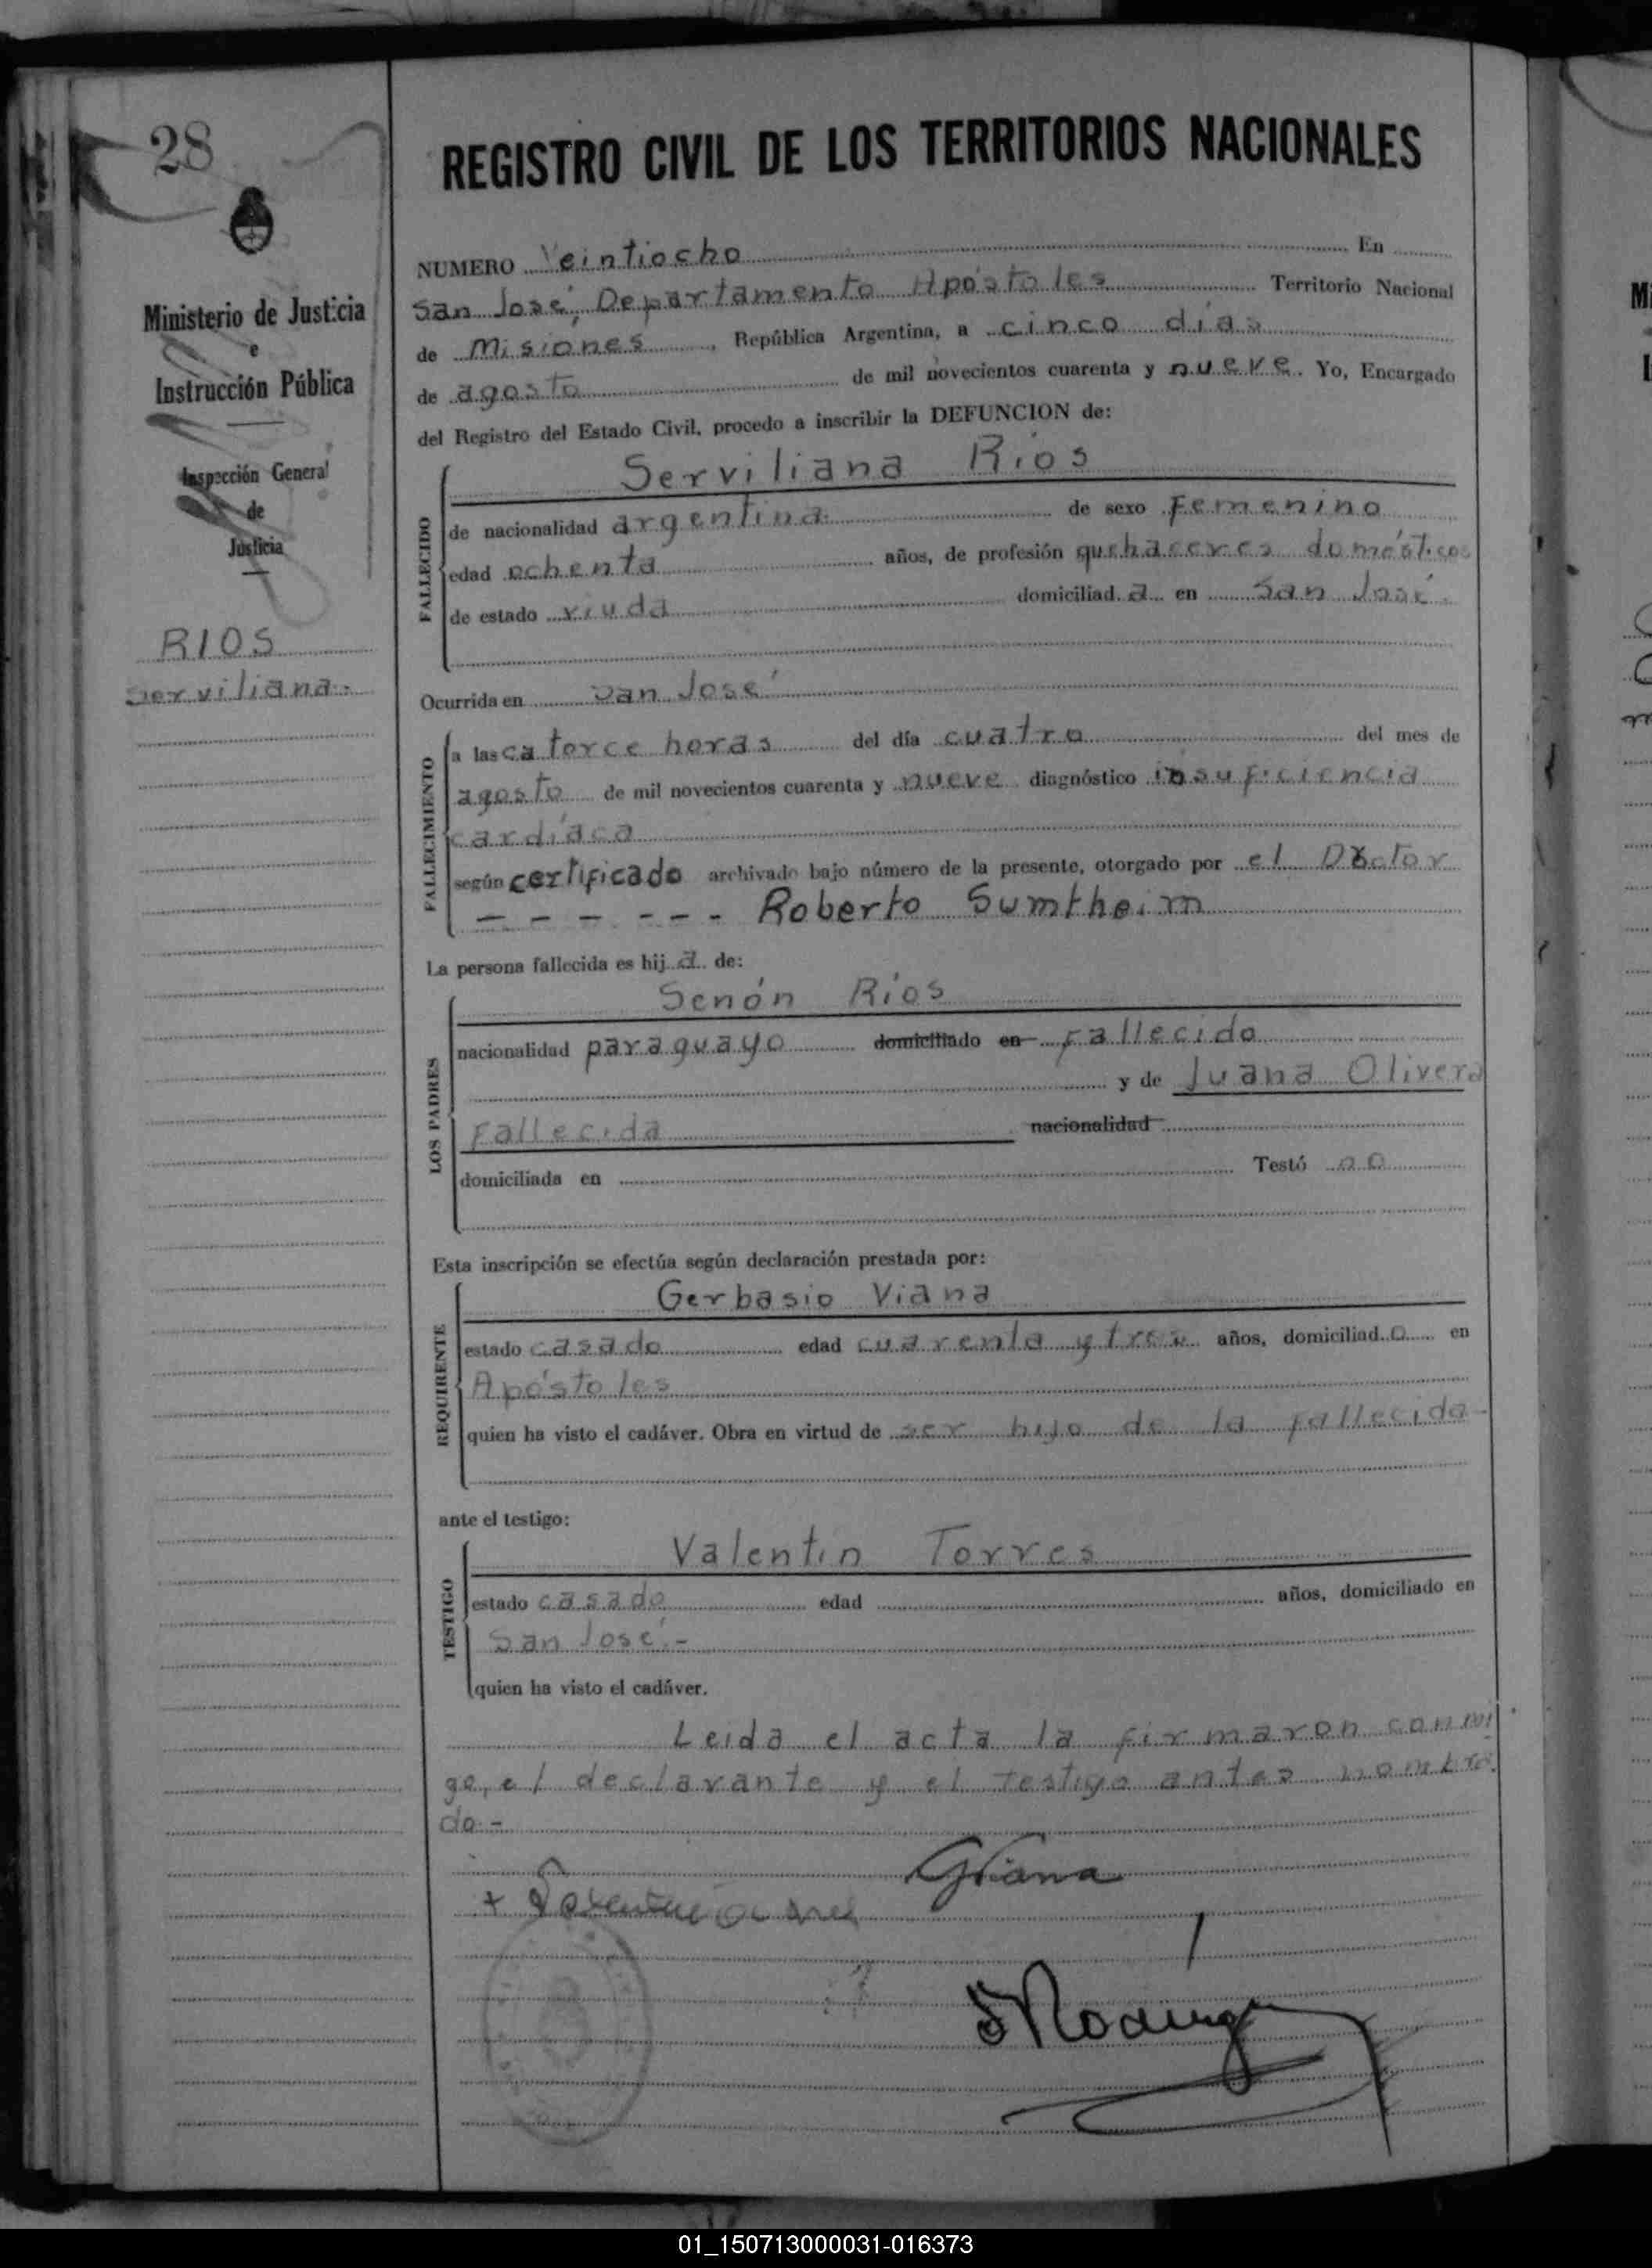 28
REGISTRO CIVIL DE LOS TERRITORIOS NACIONALES
Ministerio de Justicia
e
Instrucción Pública
Inspección General
de
Justicia
RIOS
Serviliana.
NUMERO Veintiocho En
San José, Departamento Apóstoles Territorio Nacional
de Misiones, República Argentina, a cinco días
de agosto de mil novecientos cuarenta y nueve. Yo, Encargado
del Registro del Estado Civil, procedo a inscribir la DEFUNCION de:
FALLECIDO
Serviliana Rios
de nacionalidad argentina. de sexo femenino
edad ochenta años, de profesión quehaceres domésticos
de estado viuda domiciliad a en San José.
Ocurrida en San José
FALLECIMIENTO
a las catorce horas del día cuatro del mes de
agosto de mil novecientos cuarenta y nueve diagnóstico insuficiencia
cardíaca
según certificado archivado bajo número de la presente, otorgado por el Doctor
- - - - - - Roberto Sumtheim
La persona fallecida es hij a de:
LOS PADRES
Senón Ríos
nacionalidad paraguayo domiciliado en fallecido
y de Juana Olivera
fallecida nacionalidad
domiciliada en Testó no
Esta inscripción se efectúa según declaración prestada por:
REQUIRENTE
Gerbasio Viana
estado casado edad cuarenta y tres años, domiciliad o en
Apóstoles
quien ha visto el cadáver. Obra en virtud de ser hijo de la fallecida-
ante el testigo:
TESTIGO
Valentin Torres
estado casado edad años, domiciliado en
San José.-
quien ha visto el cadáver.
Leida el acta la firmaron conmi
go, el declarante y el testigo antes nombra
do-
GViana
+
01_150713000031-016373